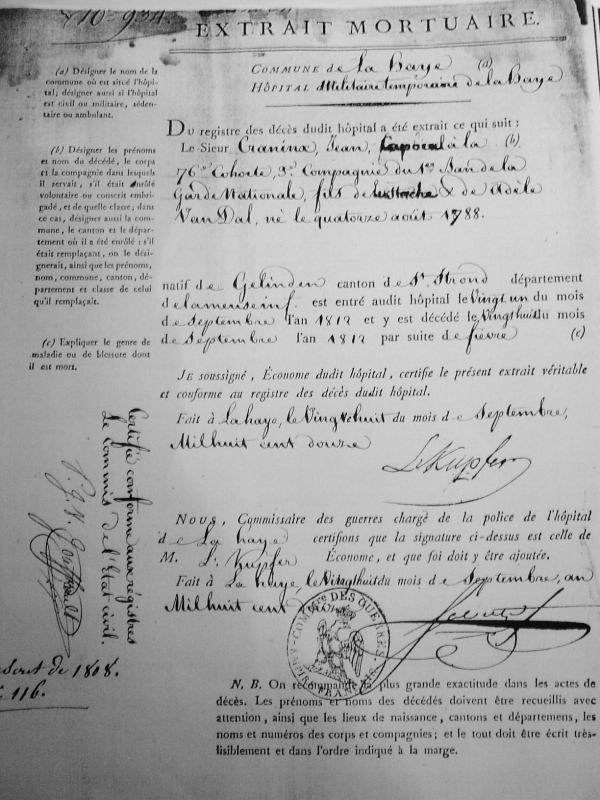 N° 934.
EXTRAIT MORTUAIRE.
(a) Désigner le nom de la
commune où est situé l'hôpi-
tal; désigner aussi si l'hôpital
est civil ou militaire, séden-
taire ou ambulant.
(b) Désigner les prénoms
et nom du décédé, le corps
et la compagnie dans lesquels
il servait, s'il était enrôlé
volontaire ou conscrit embri-
gadé, et de quelle classe; dans
ce cas, désigner aussi la com-
mune, le canton et le dépar-
tement où il a été enrôlé: s'il
était remplaçant, on le dési-
gnerait, ainsi que les prénoms,
nom, commune, canton, dé-
partement et classe de celui
qu'il remplaçait.
(c) Expliquer le genre de
maladie ou de blessure dont
il est mort.
COMMUNE de La haye (a)
HÔPITAL Militaire temporaire de la haye
DU registre des décès dudit hôpital a été extrait ce qui suit :
Le Sieur Craninx, Jean, Caporal à la (b)
76me Cohorte, 3e Compagnie du 1er Ban de la
Garde Nationale, fils de Eustache & de Adèle
Van Dal, né le quatorze août 1788.
natif de Gelinden canton de St. Trond département
de la meuse inf. est entré audit hôpital le Vingt un du mois
de Septembre l'an 1812 et y est décédé le Vingt huit du mois
de Septembre l'an 1812 par suite de fièvre (c)
JE soussigné, Économe dudit hôpital, certifie le présent extrait véritable
et conforme au registre des décès dudit hôpital.
Fait à La haye, le Vingt huit du mois de Septembre,
Mil huit cent douze
L. Kupfer
NOUS, Commissaire des guerres chargé de la police de l'hôpital
de La haye certifions que la signature ci-dessus est celle de
M. L. Kupfer Économe, et que foi doit y être ajoutée.
Fait à La haye, le Vingt huit du mois de Septembre, an
Mil huit cent
COMMRE DES GUERRES
EMPIRE FRANÇAIS
N. B. On recommande la plus grande exactitude dans les actes de
décès. Les prénoms et noms des décédés doivent être recueillis avec
attention, ainsi que les lieux de naissance, cantons et départemens, les
noms et numéros des corps et compagnies; et le tout doit être écrit très-
lisiblement et dans l'ordre indiqué à la marge.
Certifié conforme aux régistres
Le Commis de l'État civil.
Decret de 1808.
116.